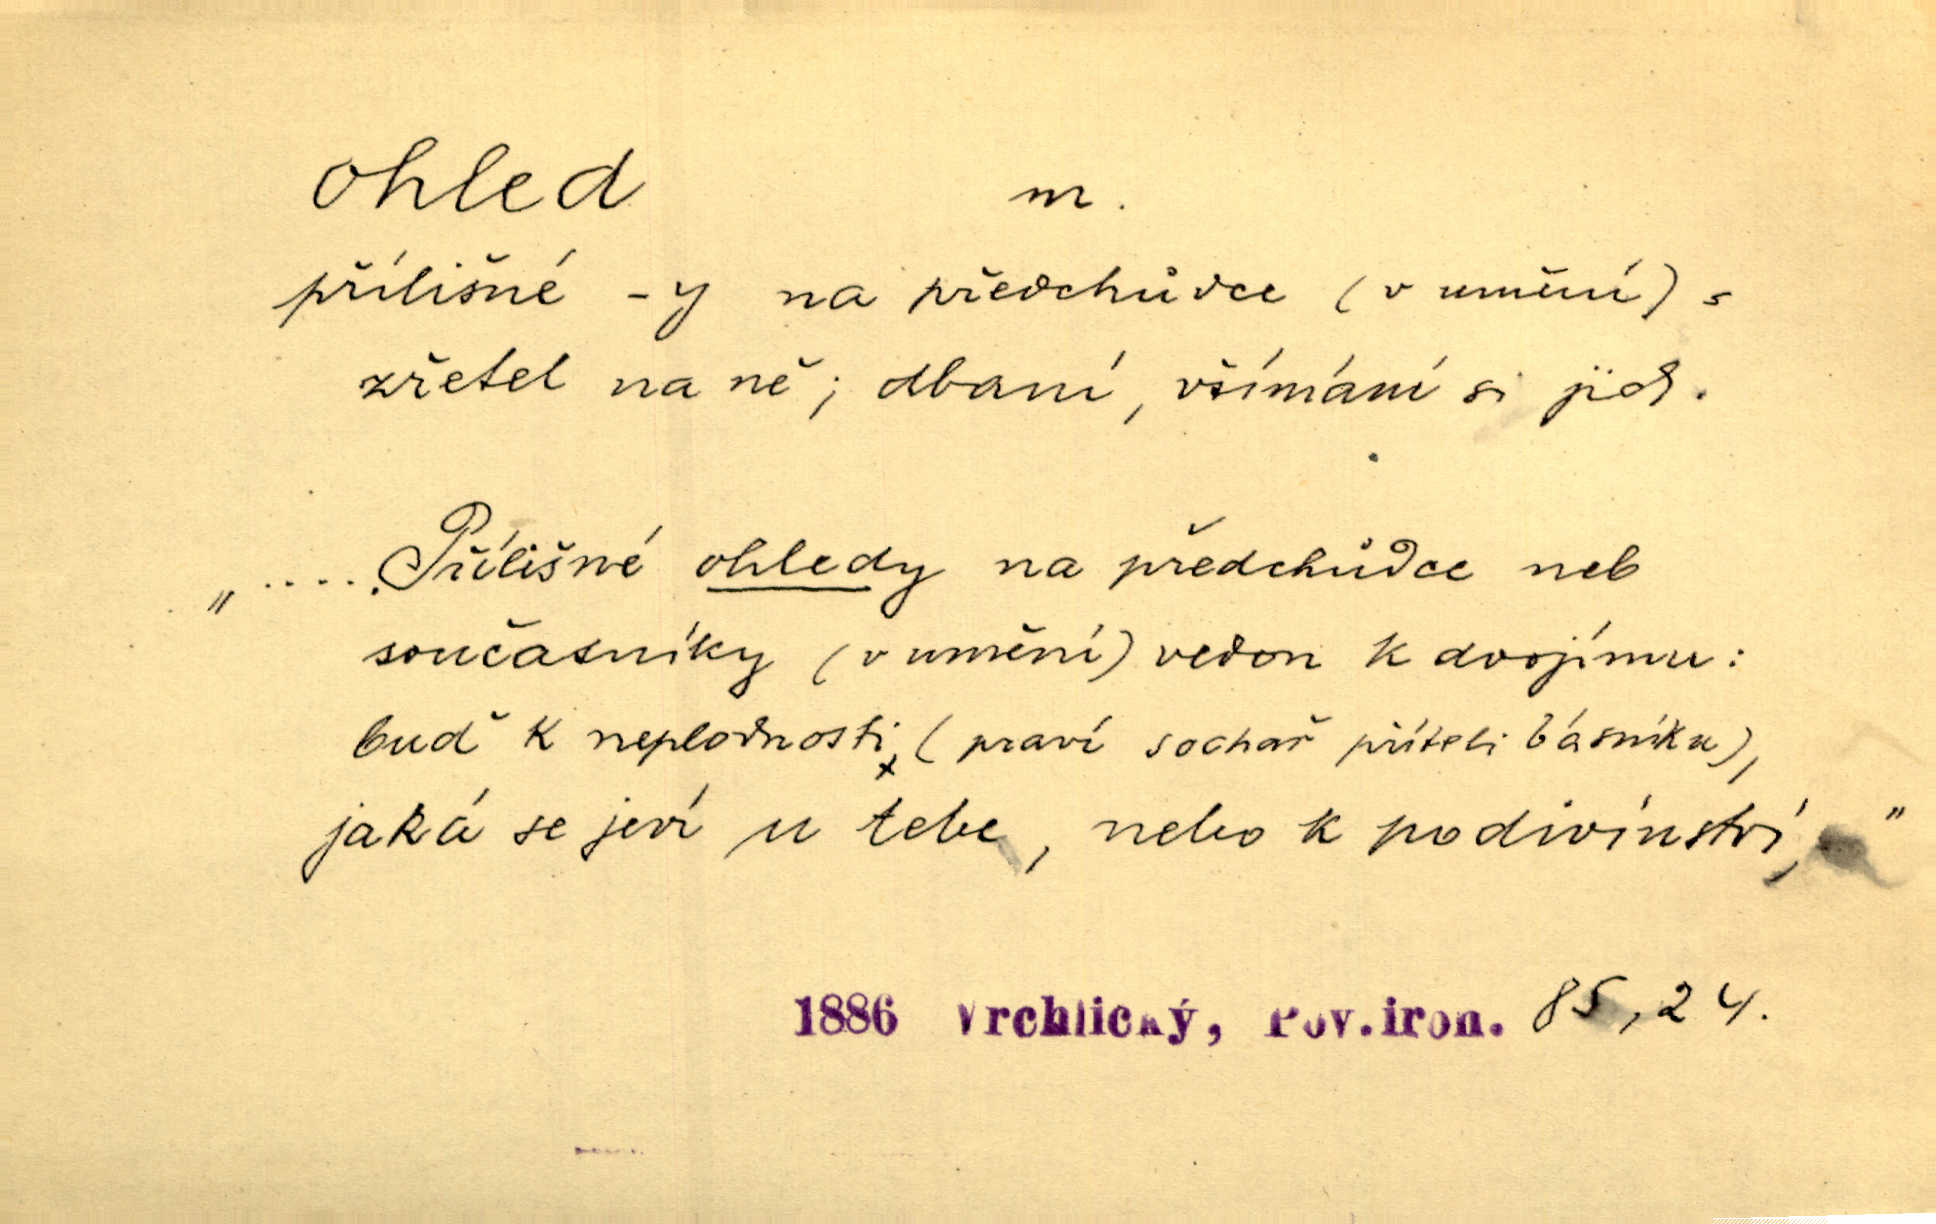 ohled m.
přílišné -y na předchůdce (v umění) =
zřetel na ně; dbaní, všímání si jich.
„.....Přílišné ohledy na předchůdce neb
současníky (v umění) vedou k dvojímu:
buď k neplodnosti, (praví sochař příteli básníku),
jaká se jeví u tebe, nebo k podivínství, "
1886 Vrchlický, Pov.iron. 85,24.